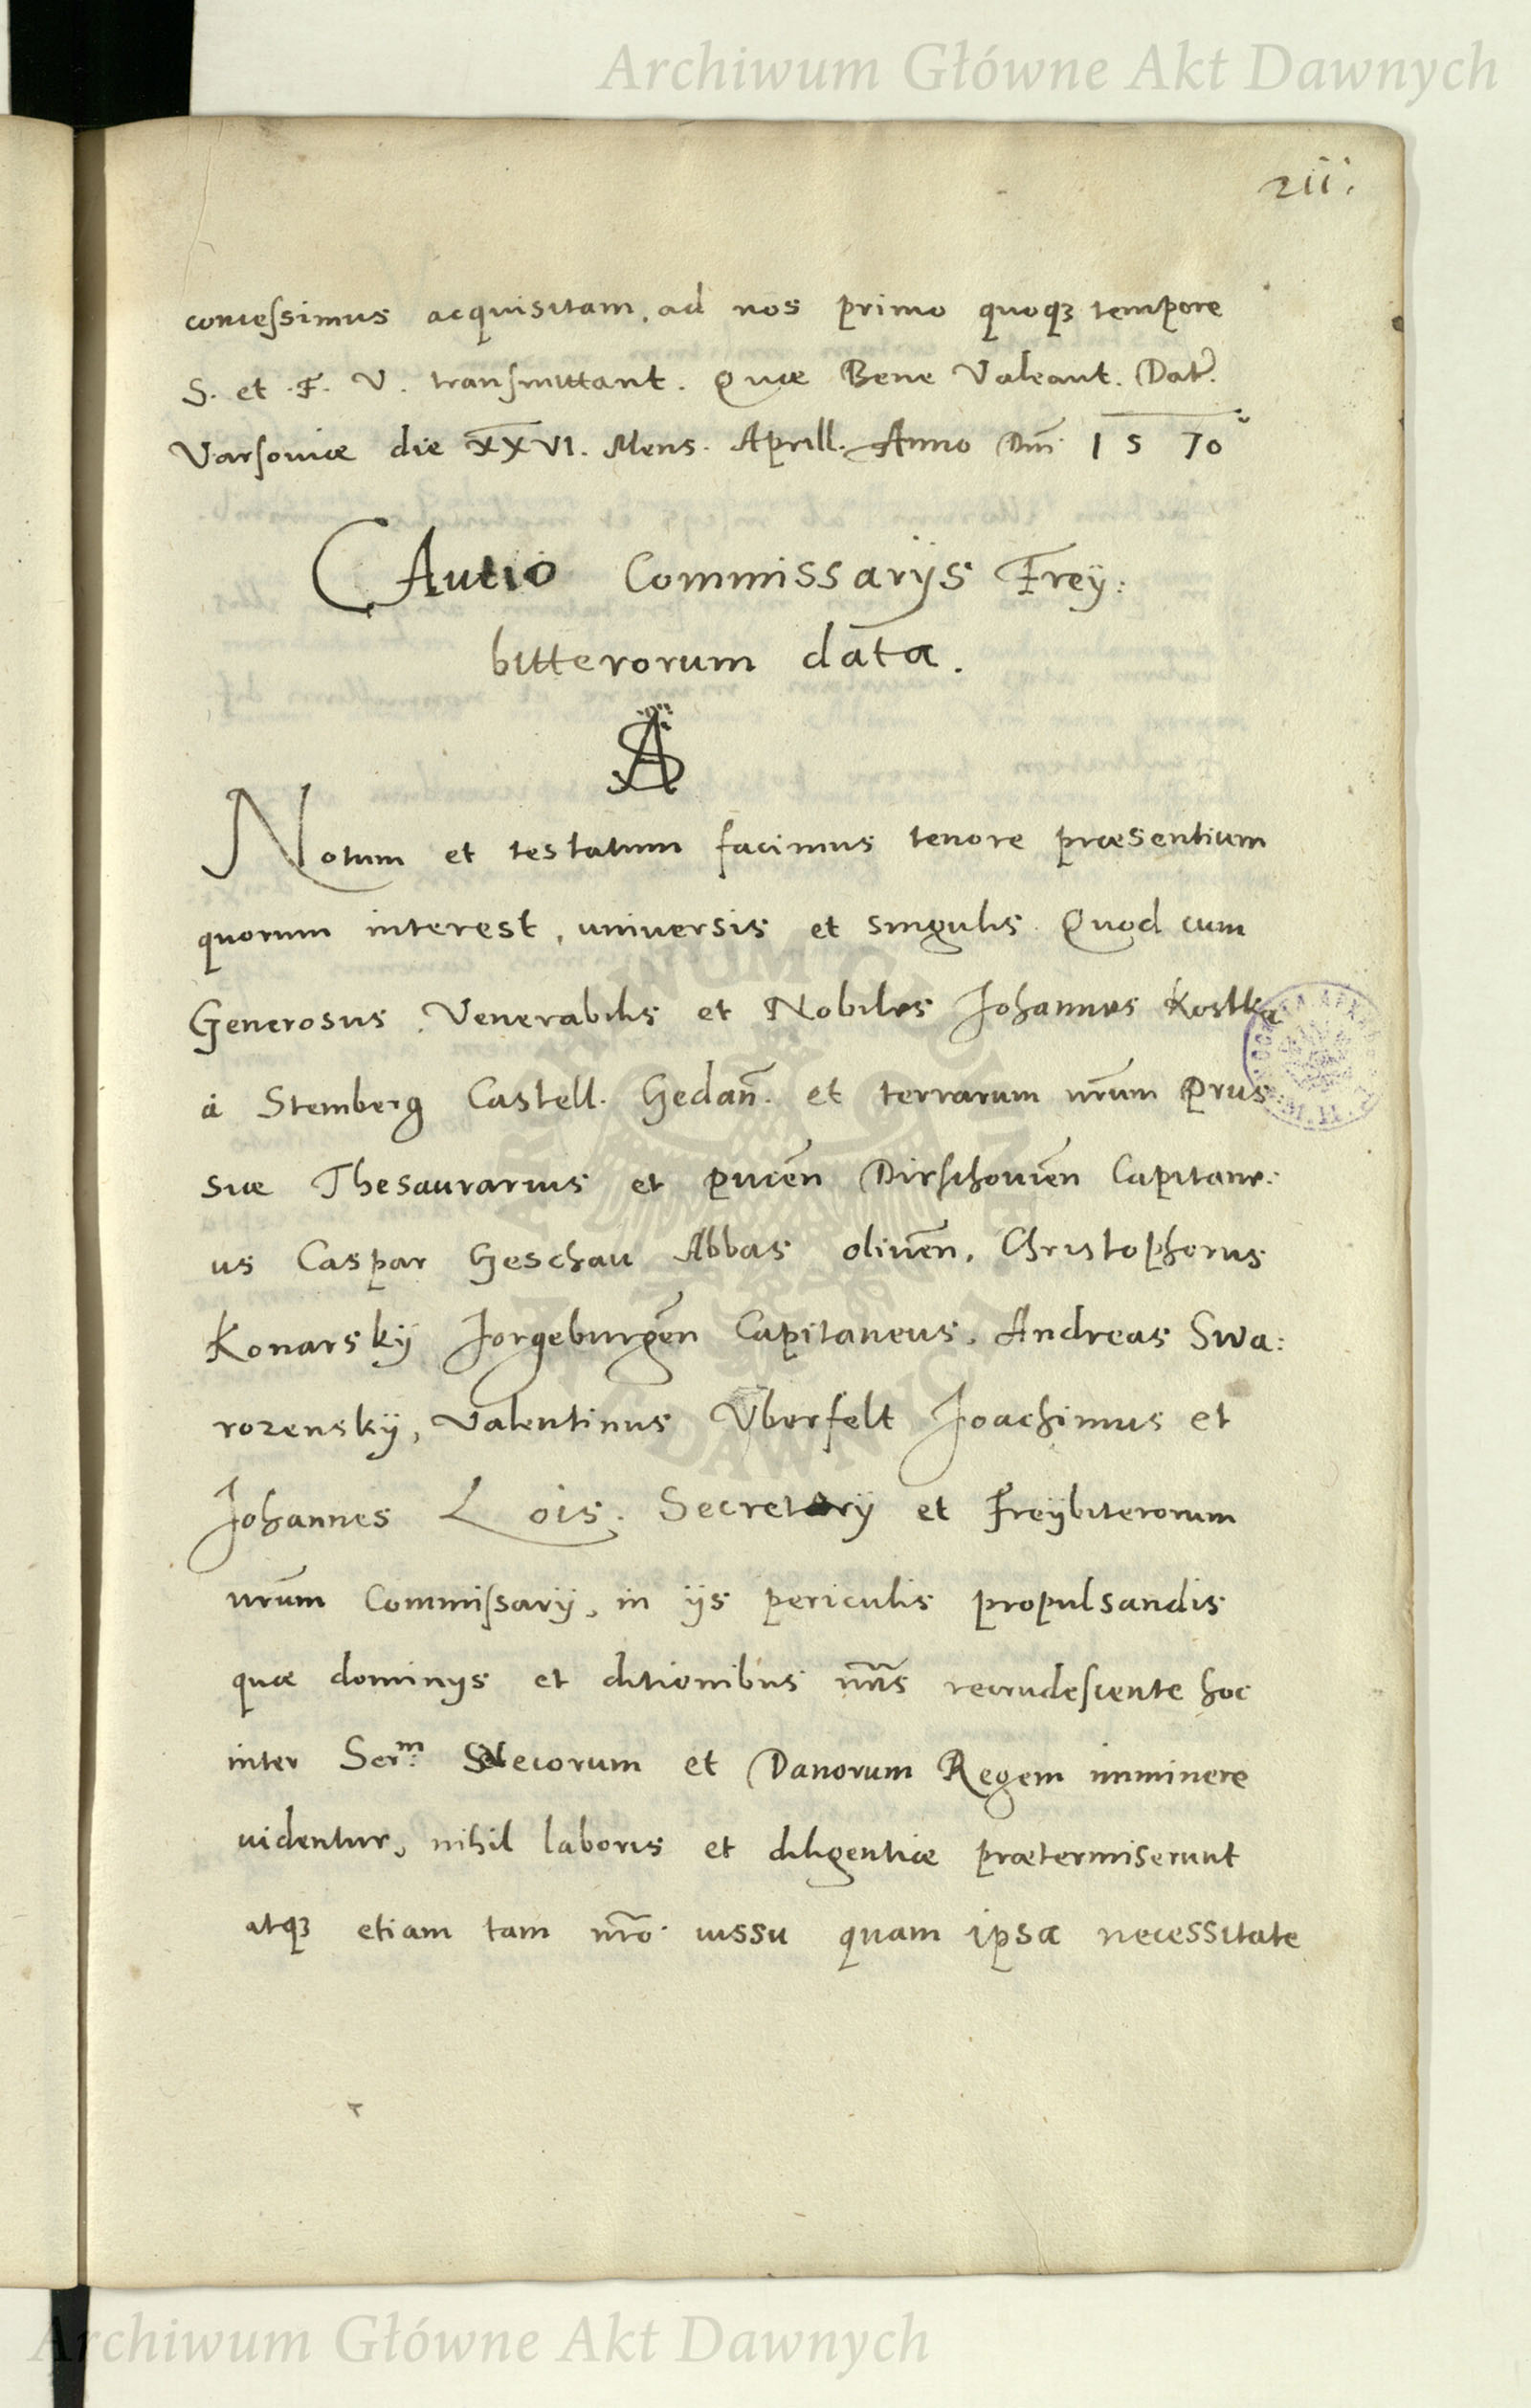 Archiwum Główne Akt Dawnych
211.
concessimus acquisitam, ad nos primo quoqꝫ tempore
S. et F. V. transmittant. Quæ Bene Valeant. Datr̃.
Varsoviæ die XXVI. Mens. Aprill. Anno Dñi 1570
CAutio Commissarijs Freÿ:
bitterorum data.
SA
Notum et testatum facimus tenore præsentium
quorum interest, universis et singulis. Quod cum
Generosus, Venerabilis et Nobiles Johannes Kostka
à Stemberg Castell. Gedañ. et terrarum nr̃um Prus
siæ Thesaurarius et puceñ Dirschovieñ Capitane:
us Caspar Geschau Abbas oliveñ, Christophorus
Konarskÿ Jorgeburgeñ Capitaneus, Andreas Swa:
rozenskÿ, Valentinus Überfelt Joachimus et
Johannes Lois, Secretarÿ et Freÿbiterorum
nr̃um Commissarÿ, in ijs periculis propulsandis
quæ dominÿs et ditionibus nr̃is recrudescente hoc
inter Ser.m Svecorum et Danorum Regem imminere
videntur, nihil laboris et diligentiæ prætermiserunt
atqꝫ etiam tam nr̃o iussu quam ipsa necessitate
Archiwum Główne Akt Dawnych